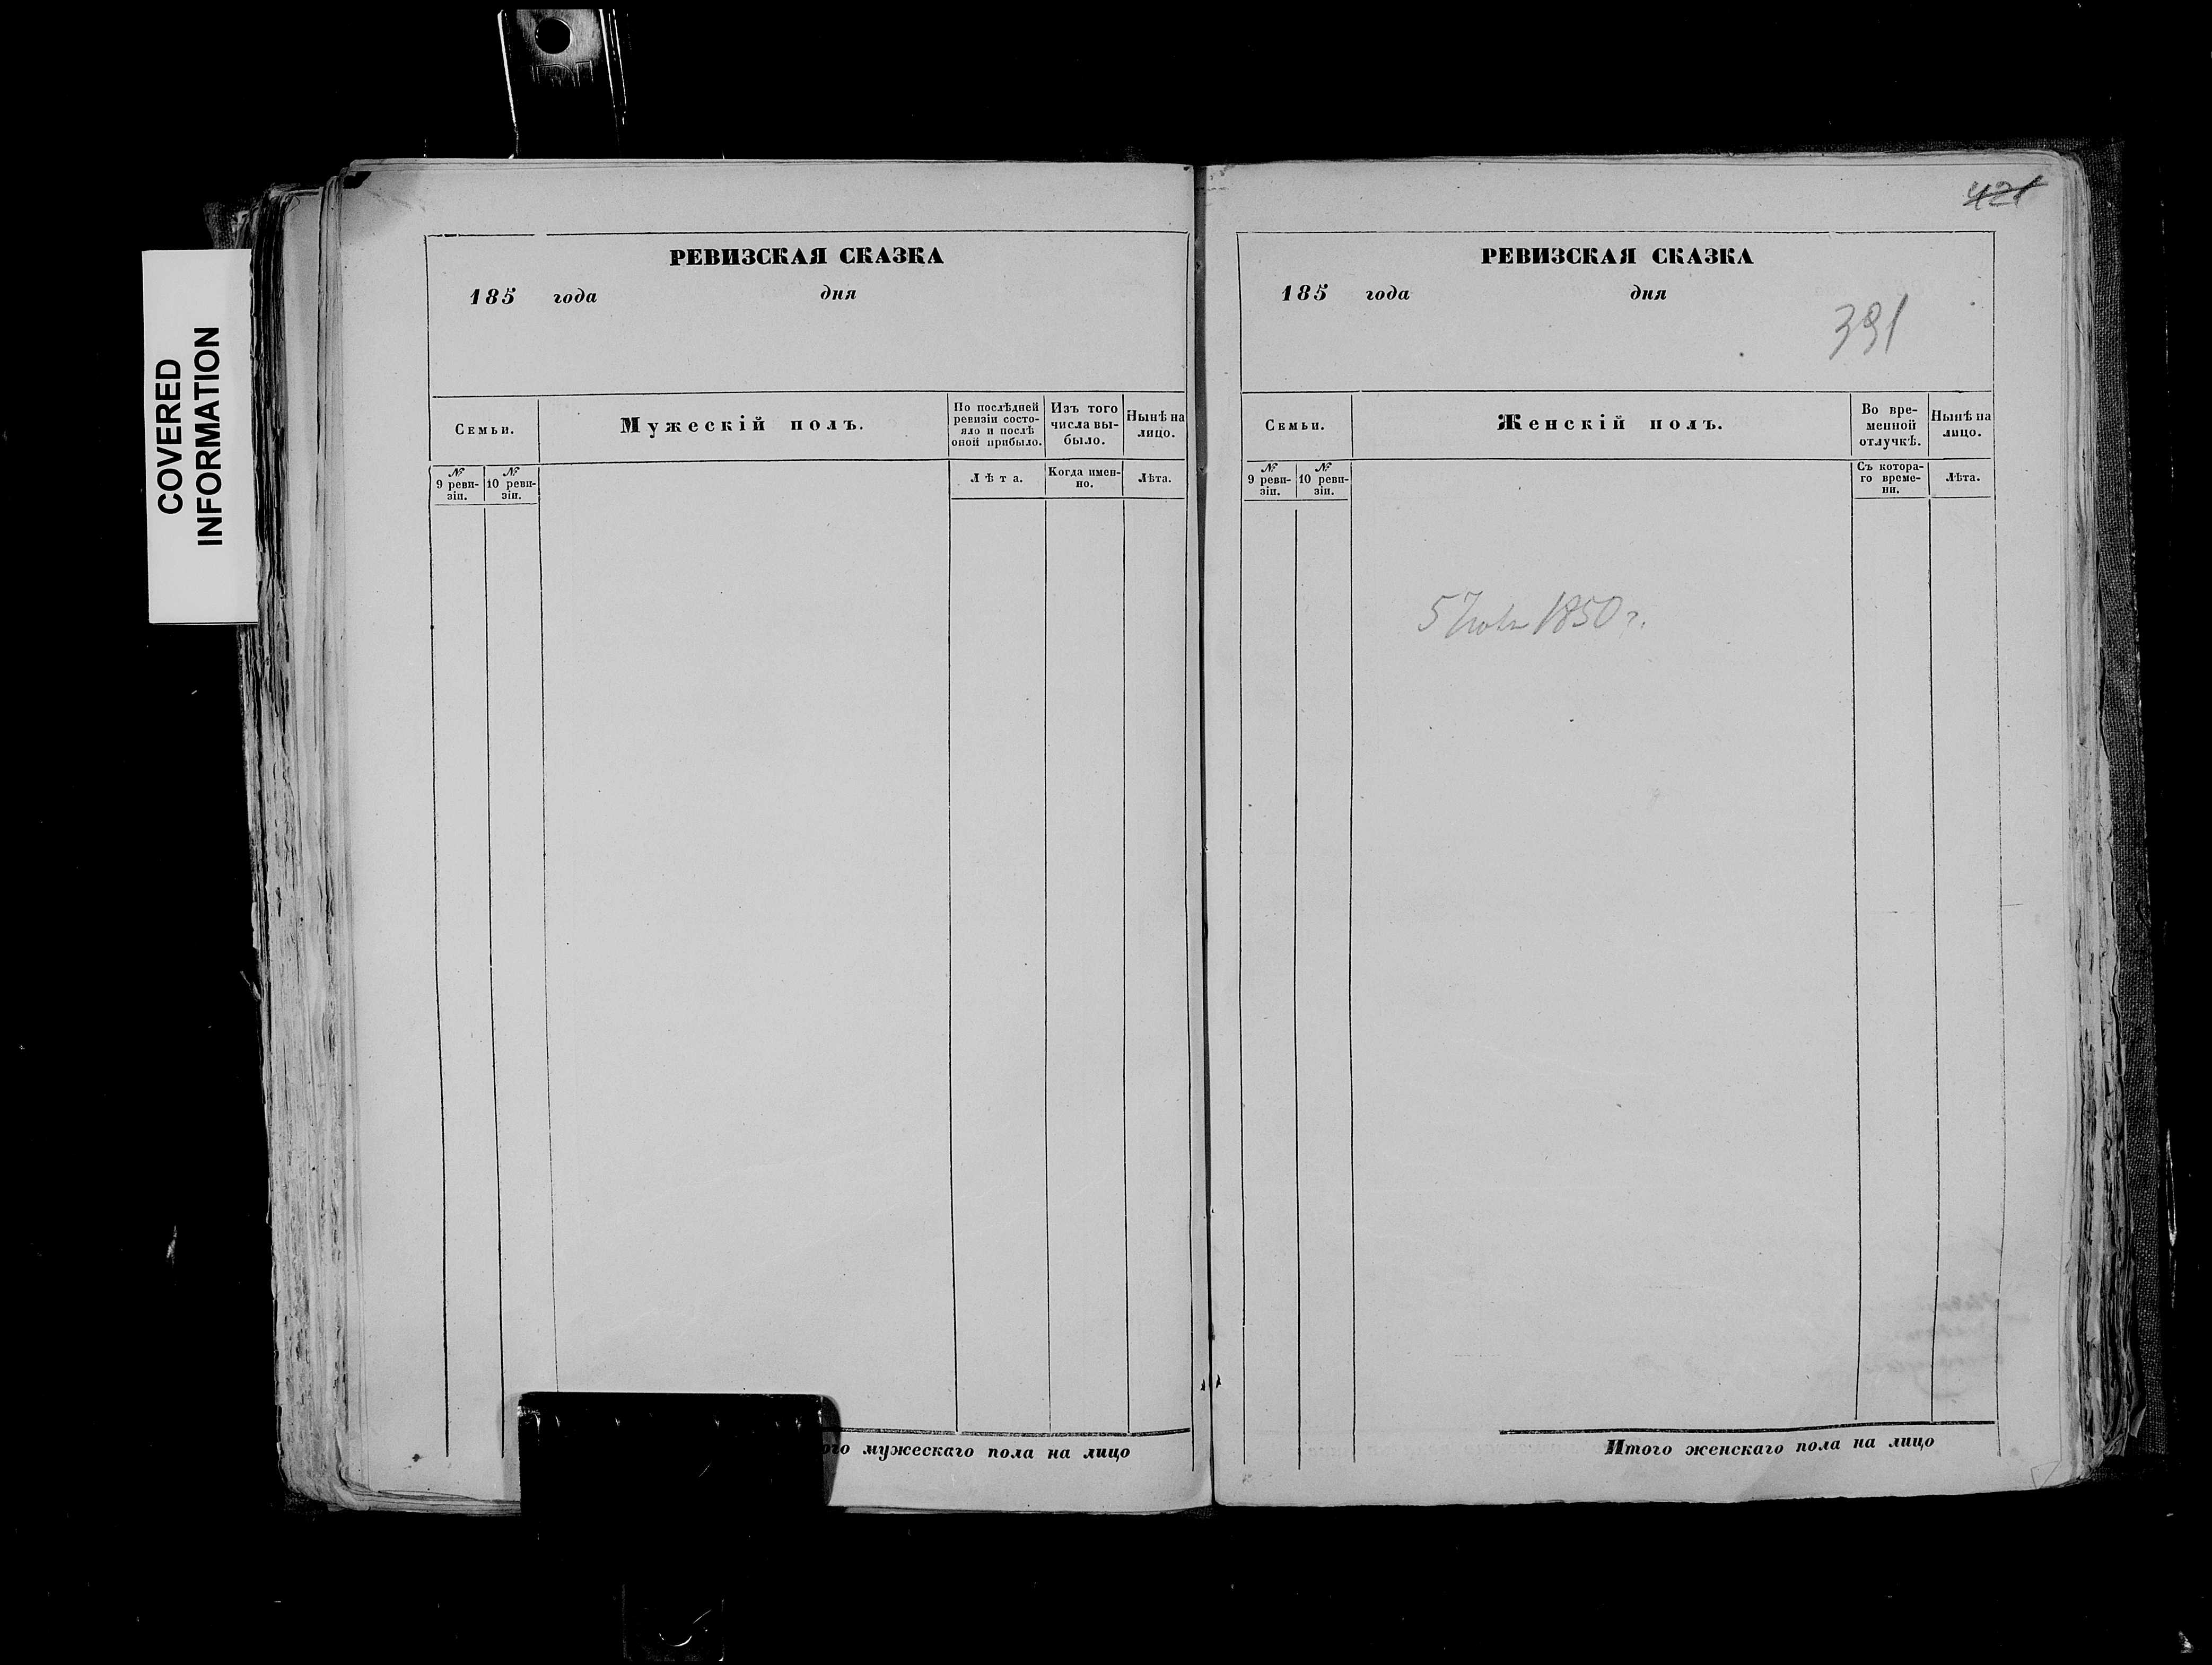 COVERED
INFORMATION
РЕВИЗСКАЯ СКАЗКА
185 года дня
Семьи.
Мужескій полъ.
По послѣдней
ревизіи состо-
яло и послѣ
оной прибыло.
Изъ того
числа вы-
было.
Нынѣ на
лицо.
№
9 реви-
зіи.
№
10 реви-
зіи.
Лѣта.
Когда имен-
но.
Лѣта.
мужескаго пола на лицо
421
РЕВИЗСКАЯ СКАЗКА
185 года дня
391
Семьи.
Женскій полъ.
Во вре-
менной
отлучкѣ.
Нынѣ на
лицо.
№
9 реви-
зіи.
№
10 реви-
зіи.
Съ котора-
го време-
ни.
Лѣта.
5 1850 г.
Итого женскаго пола на лицо